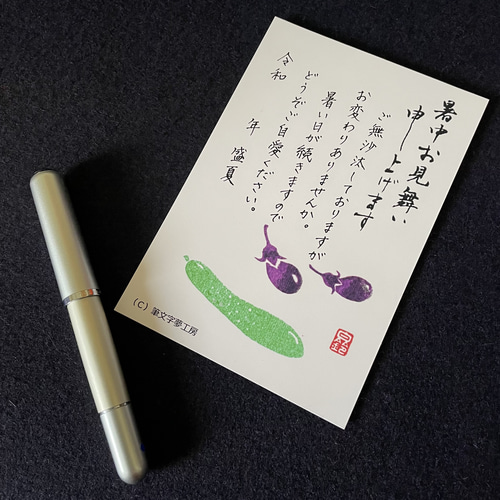 暑中お見舞い
申し上げます
ご無沙汰しておりますが
お変わりありませんか。
暑い日が続きますので
どうぞご自愛ください。
令和　年　盛夏
(C) 筆文字夢工房